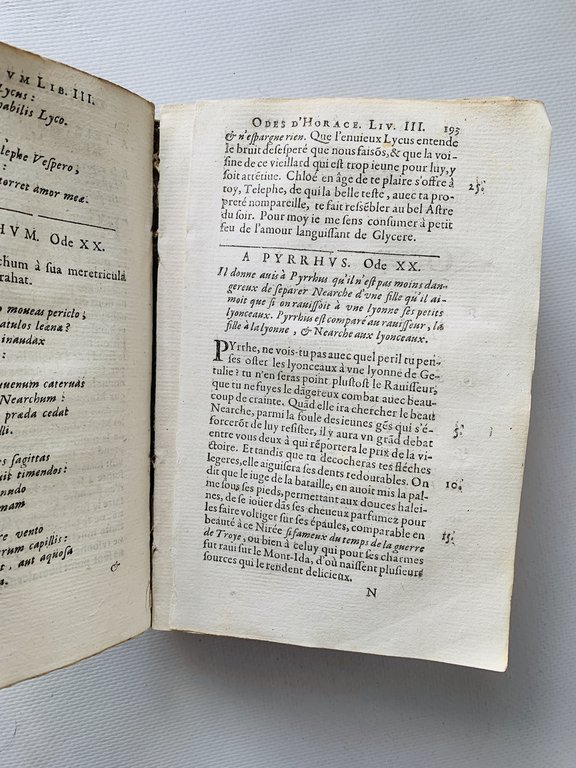 VM LIB. III.
Lycus:
abilis Lyco.
elephe Vespero;
torret amor meæ.
HVM. Ode XX.
chum à sua meretricula
rahat.
moueas periclo;
atulos leænæ?
inaudax
uuenum cateruas
Nearchum:
præda cedat
lli.
s sagittas
uit timendos:
nudo
mam
re vento
rum capillis:
t, aut aquosa
a.
&
ODES D'HORACE. LIV. III. 193
& n'espargne rien. Que l'enuieux Lycus entende
le bruit desesperé que nous faisõs, & que la voi-
sine de ce vieillard qui est trop ieune pour luy, y
soit attẽtiue. Chloé en âge de te plaire s'offre à 25.
toy, Telephe, de qui la belle teste, auec ta pro-
preté nompareille, te fait ressẽbler au bel Astre
du soir. Pour moy ie me sens consumer à petit
feu de l'amour languissant de Glycere.
A PYRRHVS. Ode XX.
Il donne auis à Pyrrhus qu'il n'est pas moins dan-
gereux de separer Nearche d'vne fille qu'il ai-
moit que si on rauissoit à vne lyonne ses petits
lyonceaux. Pyrrhus est comparé au rauisseur, la
fille à la lyonne, & Nearche aux lyonceaux.
PYrrhe, ne vois-tu pas auec quel peril tu pen-
ses oster les lyonceaux à vne lyonne de Ge-
tulie? tu n'en seras point plustost le Rauisseur,
que tu ne fuyes le dãgereux combat auec beau-
coup de crainte. Quãd elle ira chercher le beau
Nearche, parmi la foule des ieunes gẽs qui s'é- 5.
forcerõt de luy resister, il y aura vn grãd debat
entre vous deux à qui réportera le prix de la vi-
ctoire. Et tandis que tu decocheras tes fléches
legeres, elle aiguisera ses dents redoutables. On 10.
dit que le iuge de la bataille, en auoit mis la pal-
me sous ses pieds, permettant aux douces halei-
nes, de se ioüer dãs ses cheueux parfumez pour
les faire voltiger sur ses épaules, comparable en
beauté à ce Nirée si fameux du temps de la guerre 15.
de Troye, ou bien à celuy qui pour ses charmes
fut raui sur le Mont-Ida, d'où naissent plusieurs
sources qui le rendent delicieux.
N